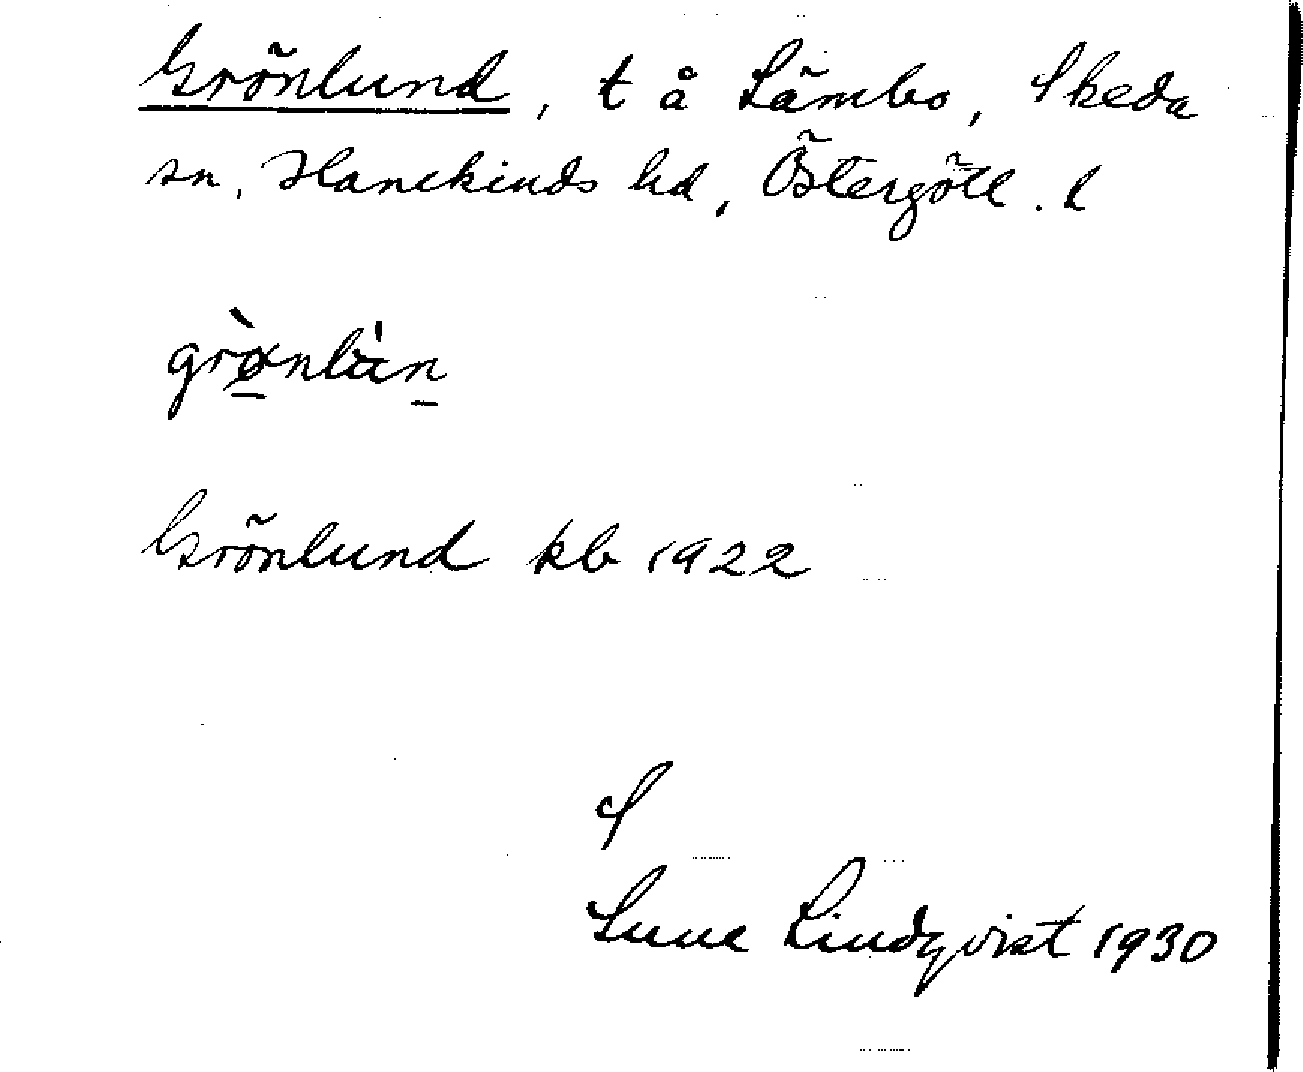 Grönlund, t å Lämbo, Skeda
sn, Hanekinds hd, Östergötl. l
grònlùn
Grönlund kb 1922
Sune Lindqvist 1930